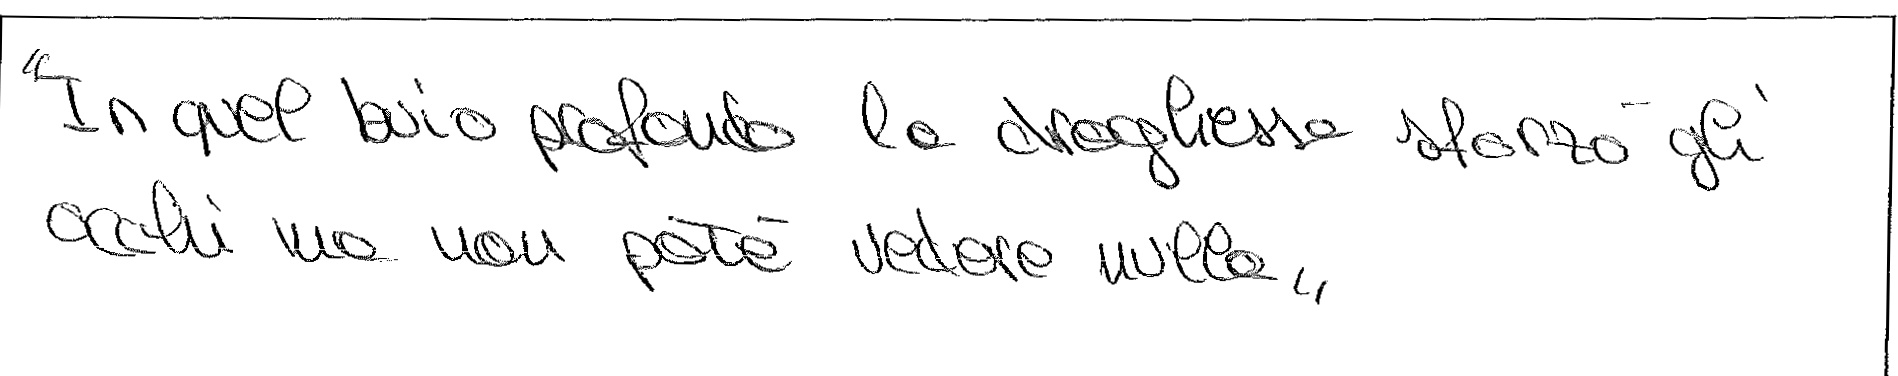 "In quel buio profondo la draghessa sforzò gli
occhi ma non potè vedere nulla"